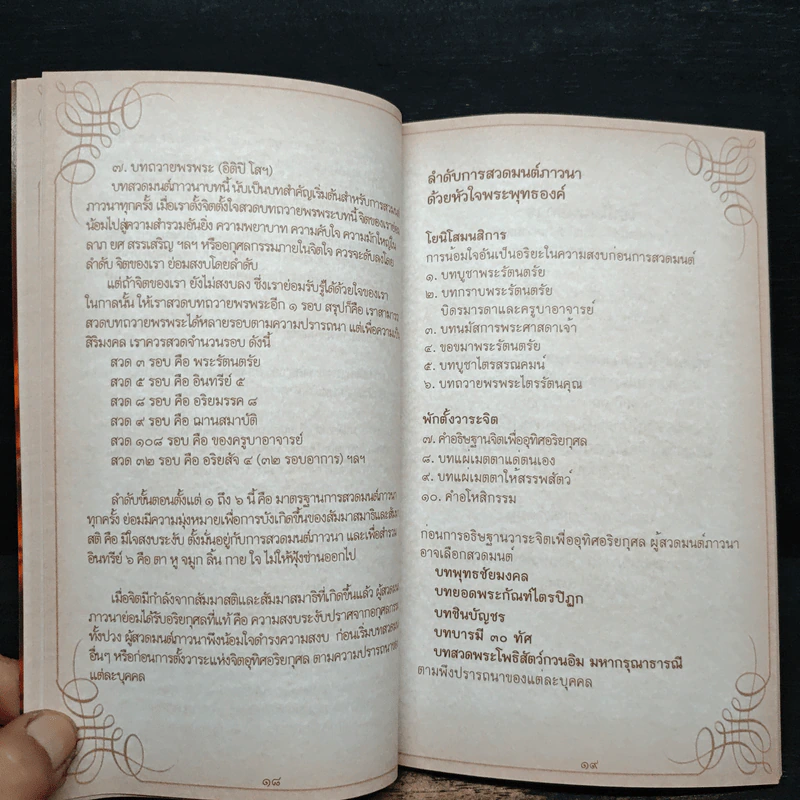 ๗. บทถวายพรพระ (อิติปิ โสฯ)
บทสวดมนต์ภาวนาบทนี้ นับเป็นบทสำคัญเริ่มต้นสำหรับการสวดมนต์
ภาวนาทุกครั้ง เมื่อเราตั้งจิตตั้งใจสวดบทถวายพรพระบทนี้ จิตของเรา
น้อมไปสู่ความสำรวมอันยิ่ง ความพยาบาท ความคับใจ ความมักใหญ่ใน
ลาภ ยศ สรรเสริญ ฯลฯ หรืออกุศลกรรมภายในจิตใจ ควรจะดับลงโดย
ลำดับ จิตของเรา ย่อมสงบโดยลำดับ
แต่ถ้าจิตของเรา ยังไม่สงบลง ซึ่งเราย่อมรับรู้ได้ด้วยใจของเรา
ในกาลนั้น ให้เราสวดบทถวายพรพระอีก ๑ รอบ สรุปก็คือ เราสามารถ
สวดบทถวายพรพระได้หลายรอบตามความปรารถนา แต่เพื่อความ
สิริมงคล เราควรสวดจำนวนรอบ ดังนี้
สวด ๓ รอบ คือ พระรัตนตรัย
สวด ๕ รอบ คือ อินทรีย์ ๕
สวด ๘ รอบ คือ อริยมรรค ๘
สวด ๙ รอบ คือ ฌานสมาบัติ
สวด ๑๐๘ รอบ คือ ของครูบาอาจารย์
สวด ๓๒ รอบ คือ อริยสัจ ๔ (๓๒ รอบอาการ) ฯลฯ
ลำดับขั้นตอนตั้งแต่ ๑ ถึง ๖ นี้ คือ มาตรฐานการสวดมนต์ภาวนา
ทุกครั้ง ย่อมมีความมุ่งหมายเพื่อการบังเกิดขึ้นของสัมมาสมาธิและสัมมา
สติ คือ มีใจสงบระงับ ตั้งมั่นอยู่กับการสวดมนต์ภาวนา และเพื่อสำรวม
อินทรีย์ ๖ คือ ตา หู จมูก ลิ้น กาย ใจ ไม่ให้ฟุ้งซ่านออกไป
เมื่อจิตมีกำลังจากสัมมาสติและสัมมาสมาธิที่เกิดขึ้นแล้ว ผู้สวดมนต์
ภาวนาย่อมได้รับอริยกุศลที่แท้ คือ ความสงบระงับปราศจากอกุศลกรรม
ทั้งปวง ผู้สวดมนต์ภาวนาพึงน้อมใจดำรงความสงบ ก่อนเริ่มบทสวดมนต์
อื่นๆ หรือก่อนการตั้งวาระแห่งจิตอุทิศอริยกุศล ตามความปรารถนาของ
แต่ละบุคคล
๑๘
ลำดับการสวดมนต์ภาวนา
ด้วยหัวใจพระพุทธองค์
โยนิโสมนสิการ
การน้อมใจอันเป็นอริยะในความสงบก่อนการสวดมนต์
๑. บทบูชาพระรัตนตรัย
๒. บทกราบพระรัตนตรัย
บิดรมารดาและครูบาอาจารย์
๓. บทนมัสการพระศาสดาเจ้า
๔. ขอขมาพระรัตนตรัย
๕. บทบูชาไตรสรณคมน์
๖. บทถวายพรพระไตรรัตนคุณ
พักตั้งวาระจิต
๗. คำอธิษฐานจิตเพื่ออุทิศอริยกุศล
๘. บทแผ่เมตตาแด่ตนเอง
๙. บทแผ่เมตตาให้สรรพสัตว์
๑๐. คำอโหสิกรรม
ก่อนการอธิษฐานวาระจิตเพื่ออุทิศอริยกุศล ผู้สวดมนต์ภาวนา
อาจเลือกสวดมนต์
บทพุทธชัยมงคล
บทยอดพระกัณฑ์ไตรปิฎก
บทชินบัญชร
บทบารมี ๓๐ ทัศ
บทสวดพระโพธิสัตว์กวนอิม มหากรุณาธารณี
ตามพึงปรารถนาของแต่ละบุคคล
๑๙